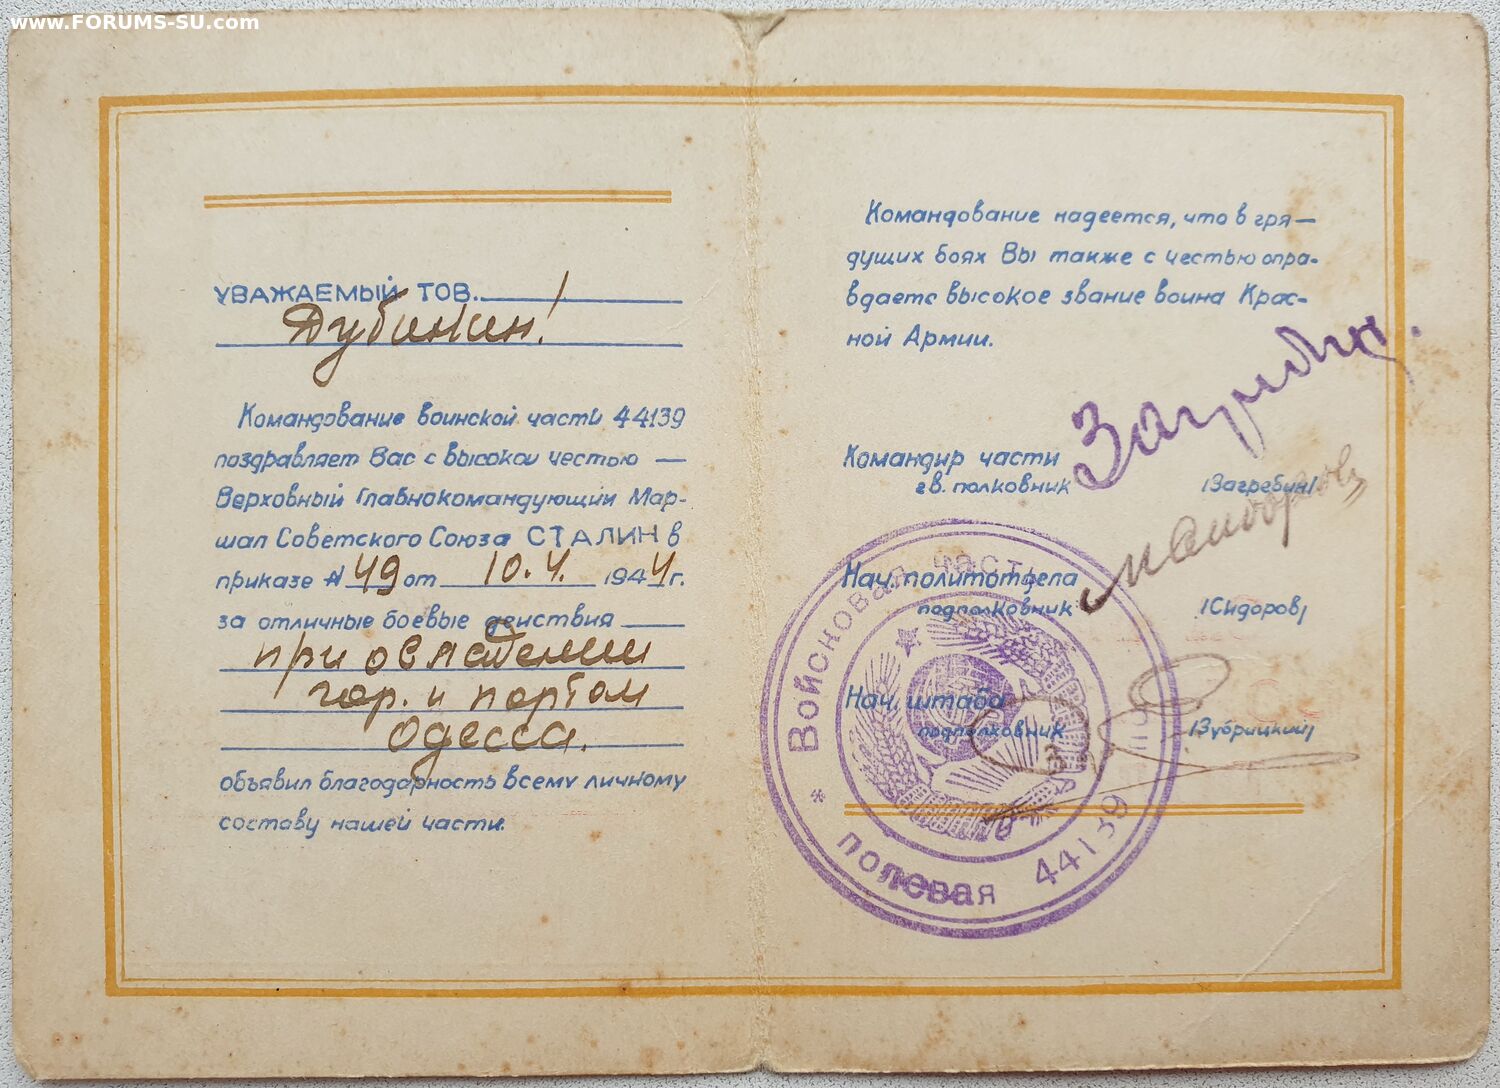 www.FORUMS-SU.com
УВАЖАЕМЫЙ ТОВ.
Дубинин!
Командование воинской части 44139
поздравляет Вас с высокой честью —
Верховный Главнокомандующий Мар-
шал Советского Союза СТАЛИН в
приказе № 49 от 10.4. 1944 г.
за отличные боевые действия
при овладении
гор. и портом
Одесса.
объявил благодарность всему личному
составу нашей части.
Командование надеется, что в гря-
дущих боях Вы также с честью опра-
вдаете высокое звание воина Крас-
ной Армии.
Командир части
гв. полковник Загребин /Загребин/
Нач. политотдела
подполковник /Сидоров/
Нач. штаба
подполковник /Зубрицкий/
Войсковая часть
полевая 44139